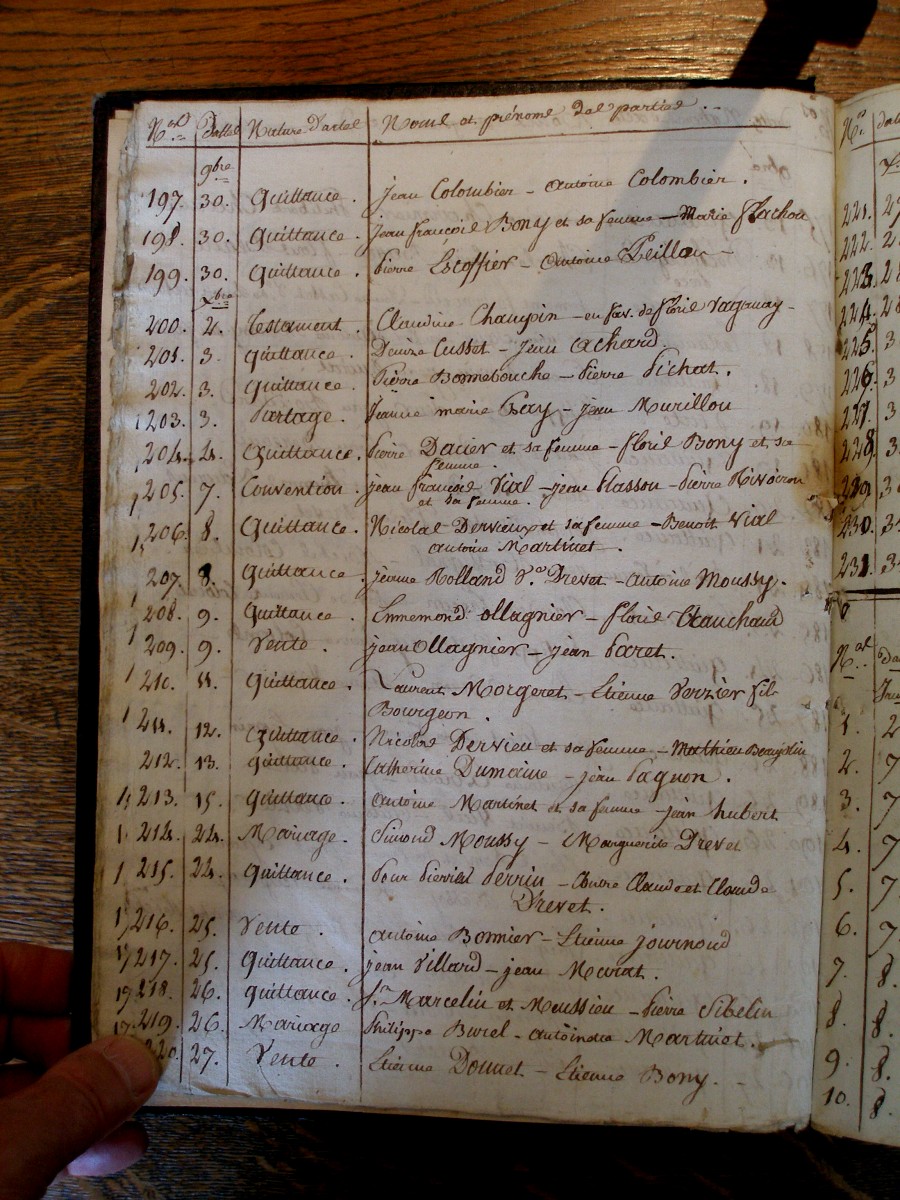 Nos. Dattes Nature d'actes Noms et prénoms des parties
9bre
197. 30. Quittance. jean Colombier - antoine Colombier.
198. 30. Quittance. jean françois Bony et sa femme - Marie flachon
199. 30. Quittance. pierre Escoffier - antoine Peillon -
xbre
200. 2. Testament. Claudine Chaupin - en fav. de floris
201. 3. Quittance. Denize Cusset - jean achard.
202. 3. Quittance. Pierre Bonnebouche - pierre pichat.
203. 3. Partage. jeanne marie Gay - jean Murillon
204. 4. Quittance. pierre Dacier et sa femme - floris Bony et sa
femme.
205. 7. Convention. jean françois Vial - jean flasson - pierre Rivoiron
et sa femme.
206. 8. Quittance. Nicolas Dervieux et sa femme - Benoit Vial
antoine Martinet.
207. 8. Quittance. jeanne Rolland Ve. Drevet - antoine Moussy.
208. 9. Quittance. Ennemond ollagnier - floris
209. 9. Vente. jean Ollagnier - jean paret.
210. 11. Quittance. Laurent Morgeret - Etienne Verzier fils
Bourgeon.
211. 12. Quittance. Nicolas Dervieu et sa femme - Mathieu
212. 13. Quittance. Catherine Dumaine - jean pagnon.
213. 15. Quittance. antoine Martinet et sa femme - jean hubert
214. 24. Mariage. Simond Moussy - Marguerite Drevet
215. 24. Quittance. pour perrin - Contre Claude et Claude
Drevet.
216. 25. Vente. antoine Bonnier - Etienne journoud
217. 25. Quittance. jean Villard - jean Murat.
218. 26. Quittance. Marcelin et Moussieu - pierre Sibelin
219. 26. Mariage Philippe Burel - antoinette Martinet.
27. Vente. Etienne Donnet - Etienne Bony.
221.
222.
223.
224.
225. 3
226. 3
227. 3
228. 3
229. 3
230. 3
231. 3
1. 2
2. 7
3. 7
4. 7
5. 7
6. 7
7. 8.
8. 8.
9. 8.
10. 8.